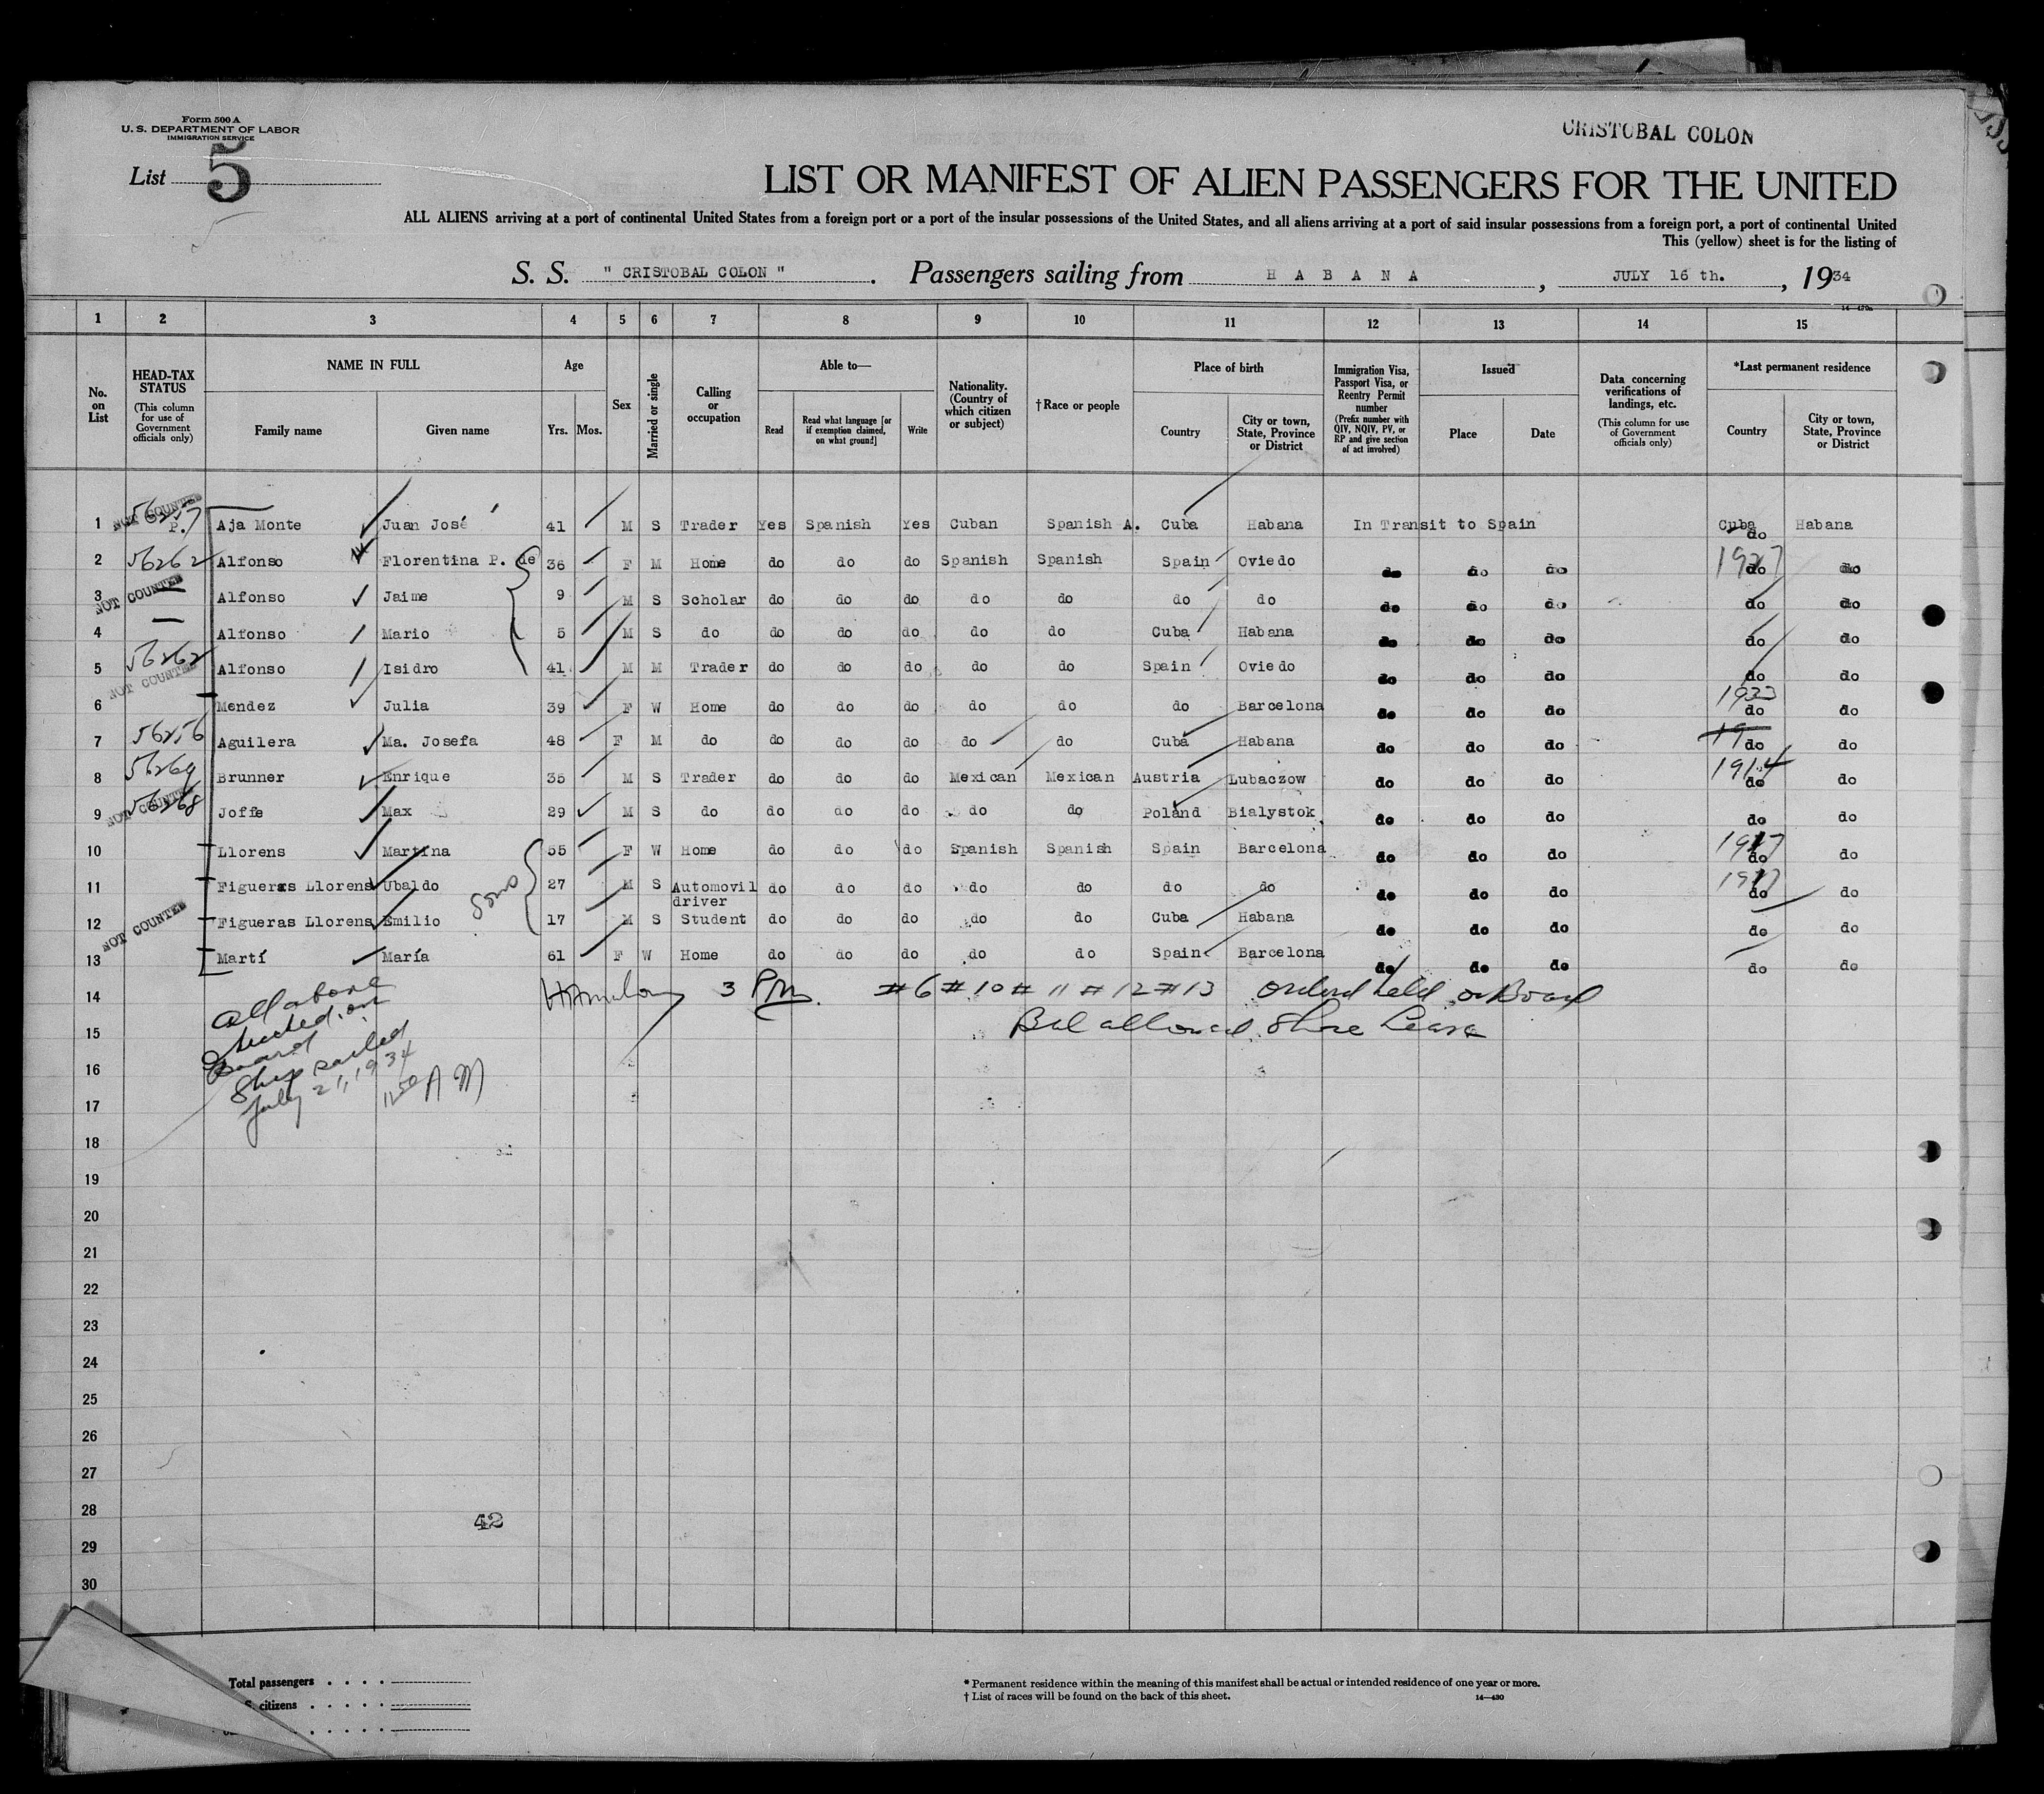 Form 500 A
U. S. DEPARTMENT OF LABOR
IMMIGRATION SERVICE
CRISTOBAL COLON
List 5
LIST OR MANIFEST OF ALIEN PASSENGERS FOR THE UNITED
ALL ALIENS arriving at a port of continental United States from a foreign port or a port of the insular possessions of the United States, and all aliens arriving at a port of said insular possessions from a foreign port, a port of continental United
This (yellow) sheet is for the listing of
S. S. " CRISTOBAL COLON " . Passengers sailing from H A B A N A , JULY 16 th. , 1934
1 2 3 4 5 6 7 8 9 10 11 12 13 14 15
No. on List
HEAD-TAX STATUS (This column for use of Government officials only)
NAME IN FULL Family name Given name
Age Yrs. Mos.
Sex
Married or single
Calling or occupation
Able to— Read Read what language [or if exemption claimed, on what ground] Write
Nationality. (Country of which citizen or subject)
† Race or people
Place of birth Country City or town, State, Province or District
Immigration Visa, Passport Visa, or Reentry Permit number (Prefix number with QIV, NQIV, PV, or RP and give section of act involved)
Issued Place Date
Data concerning verifications of landings, etc. (This column for use of Government officials only)
*Last permanent residence Country City or town, State, Province or District
1 NOT COUNTED P. Aja Monte Juan José 41 M S Trader Yes Spanish Yes Cuban Spanish A. Cuba Habana In Transit to Spain Cuba Habana
do
2 56262 Alfonso Florentina P. de 36 F M Home do do do Spanish Spanish Spain Oviedo do do do 1927 do do
3 NOT COUNTED — Alfonso Jaime 9 M S Scholar do do do do do do do do do do do do
4 — Alfonso Mario 5 M S do do do do do do Cuba Habana do do do do do
5 56262 NOT COUNTED Alfonso Isidro 41 M M Trader do do do do do Spain Oviedo do do do do do
6 Mendez Julia 39 F W Home do do do do do do Barcelona do do do 1933 do do
7 56256 Aguilera Ma. Josefa 48 F M do do do do do do Cuba Habana do do do 19 do do
8 56269 Brunner Enrique 35 M S Trader do do do Mexican Mexican Austria Lubaczow do do do 1914 do do
9 NOT COUNTED 56268 Joffe Max 29 M S do do do do do do Poland Bialystok do do do do do
10 Llorens Martina 55 F W Home do do do Spanish Spanish Spain Barcelona do do do 1917 do do
11 Figueras Llorens Ubaldo Sons 27 M S Automovil driver do do do do do do do do do do 1917 do do
12 NOT COUNTED Figueras Llorens Emilio 17 M S Student do do do do do Cuba Habana do do do do do
13 Martí María 61 F W Home do do do do do Spain Barcelona do do do do do
14 3 Pm. #6 #10 # 11 # 12 #13 Ordered held on Board
15 Bal allowed Shore Leave
All above
checked on
Board
Ship sailed
July 21, 1934
11:50 A M
16
17
18
19
20
21
22
23
24
25
26
27
28
42
29
30
Total passengers . . . .
citizens . . . . .
* Permanent residence within the meaning of this manifest shall be actual or intended residence of one year or more.
† List of races will be found on the back of this sheet. 14—430